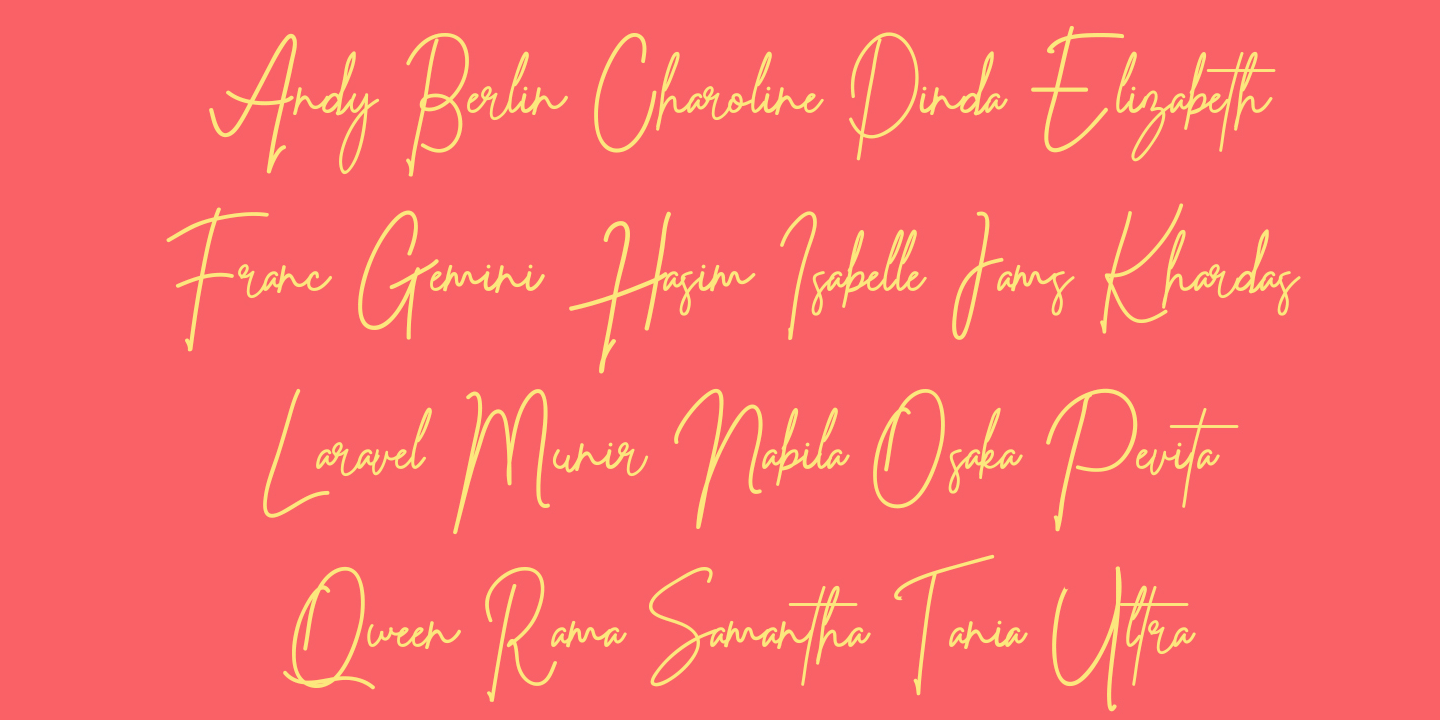 Andy Berlin Charoline Dinda Elizabeth
Franc Gemini Hasim Isabelle Jams Khardas
Laravel Munir Nabila Osaka Pevita
Qween Rama Samantha Tania Ultra